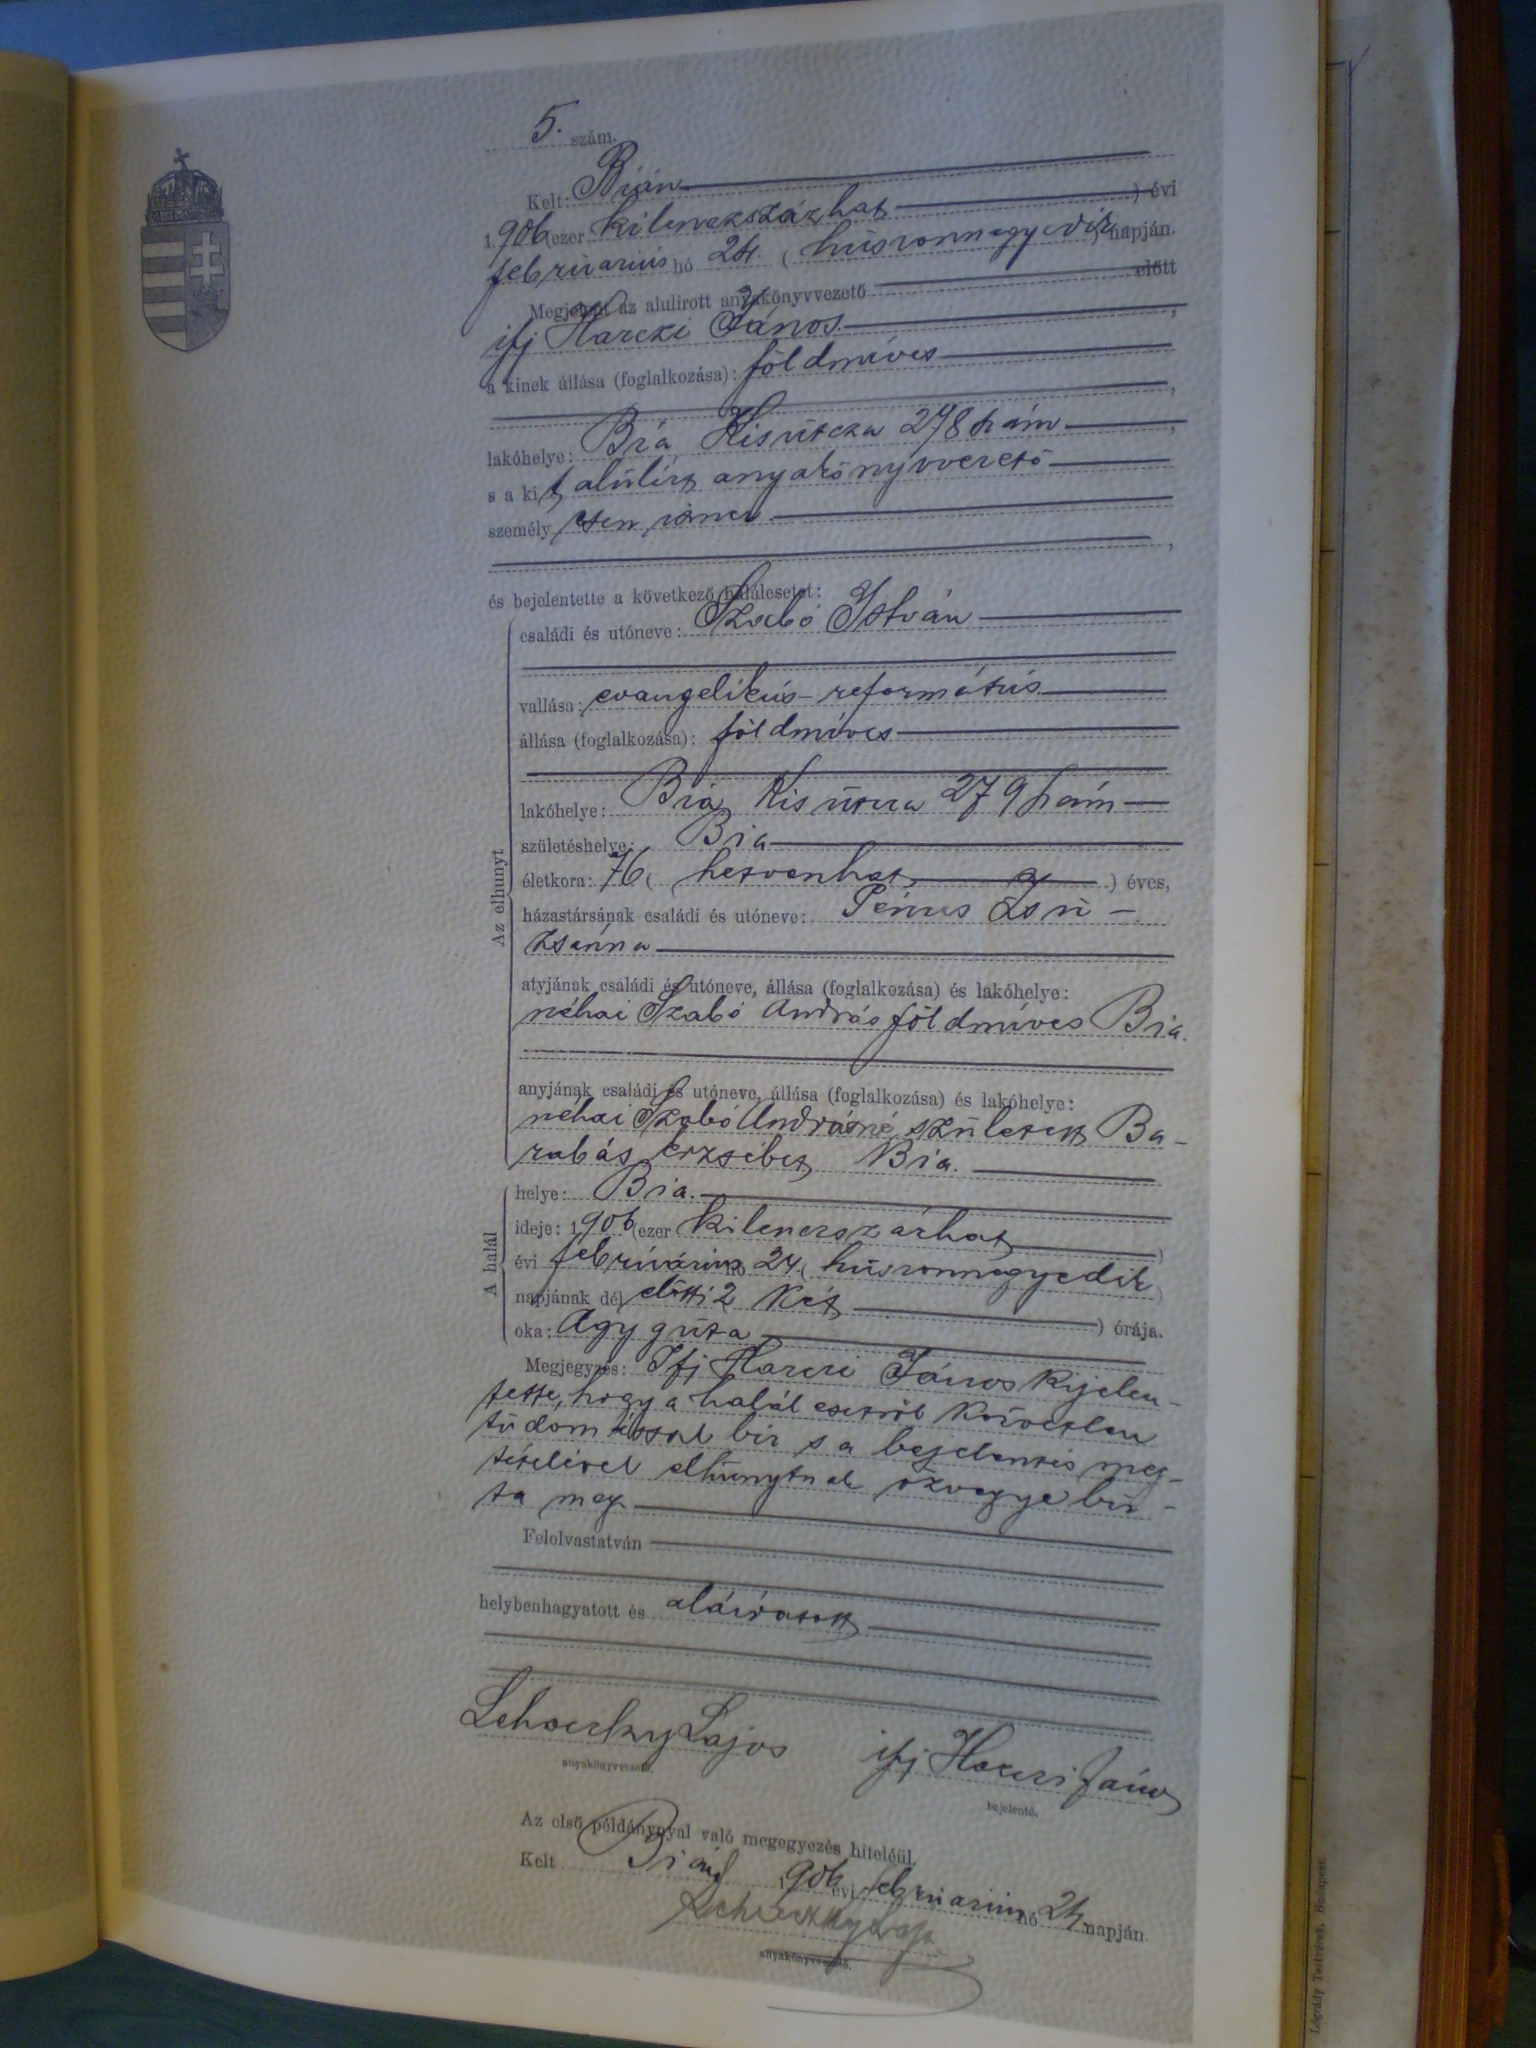 5. szám.
Kelt: Bián
1906 (ezer kilenczszázhat ) évi
februarius hó 24. ( huszonnegyedik ) napján.
Megjelent az alulirott anyakönyvvezető előtt
ifj Harczi János ,
a kinek állása (foglalkozása): földmíves
,
lakóhelye: Bia Kisutcza 278 hám ,
s a kit alulírt anyakönyvvezető
személyesen ismer
,
és bejelentette a következő halálesetet:
Az elhunyt
családi és utóneve: Szabó István
vallása: evangelikus-református
állása (foglalkozása): földmíves
lakóhelye: Bia Kisutcza 279 hám
születéshelye: Bia
életkora: 76 ( hetvenhat ) éves,
házastársának családi és utóneve: Zsu-
zsánna
atyjának családi és utóneve, állása (foglalkozása) és lakóhelye:
néhai Szabó András földmíves Bia.
anyjának családi és utóneve, állása (foglalkozása) és lakóhelye:
néhai Szabó Andrásné született Ba-
rabás Erzsébet Bia.
A halál
helye: Bia.
ideje: 1906 (ezer kilenczszázhat )
évi februárius hó 24. ( huszonnegyedik )
napjának dél előtti 2 két ) órája.
oka: Agy guta
Megjegyzés: Ifj Harczi János kijelen-
tette, hogy a halál esetről közvetlen
tudomással bír s a bejelentés meg-
tételével elhunytnak özvegye bíz-
ta meg.
Felolvastatván
helybenhagyatott és aláíratott
Lehoczky Lajos ifj Harczi János
anyakönyvvezető. bejelentő.
Az első példánynyal való megegyezés hiteléül.
Kelt Bián 1906 évi februarius hó 24. napján.
Lehoczky Lajos
anyakönyvvezető.
Légrády Testvérek, Budapest.